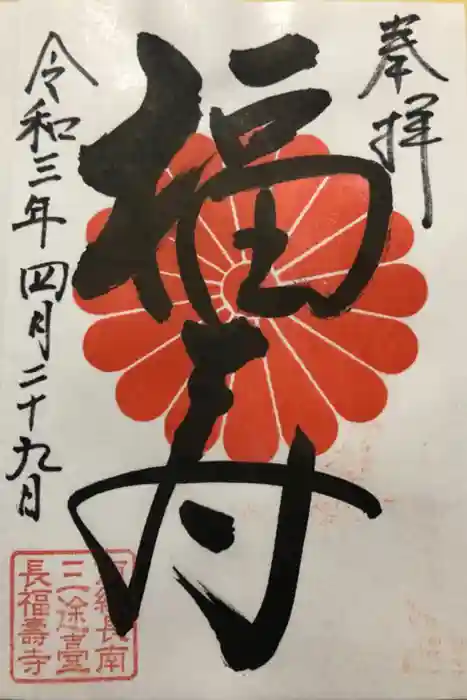 奉拝
福寿
令和三年四月二十九日
三途臺
長福壽寺